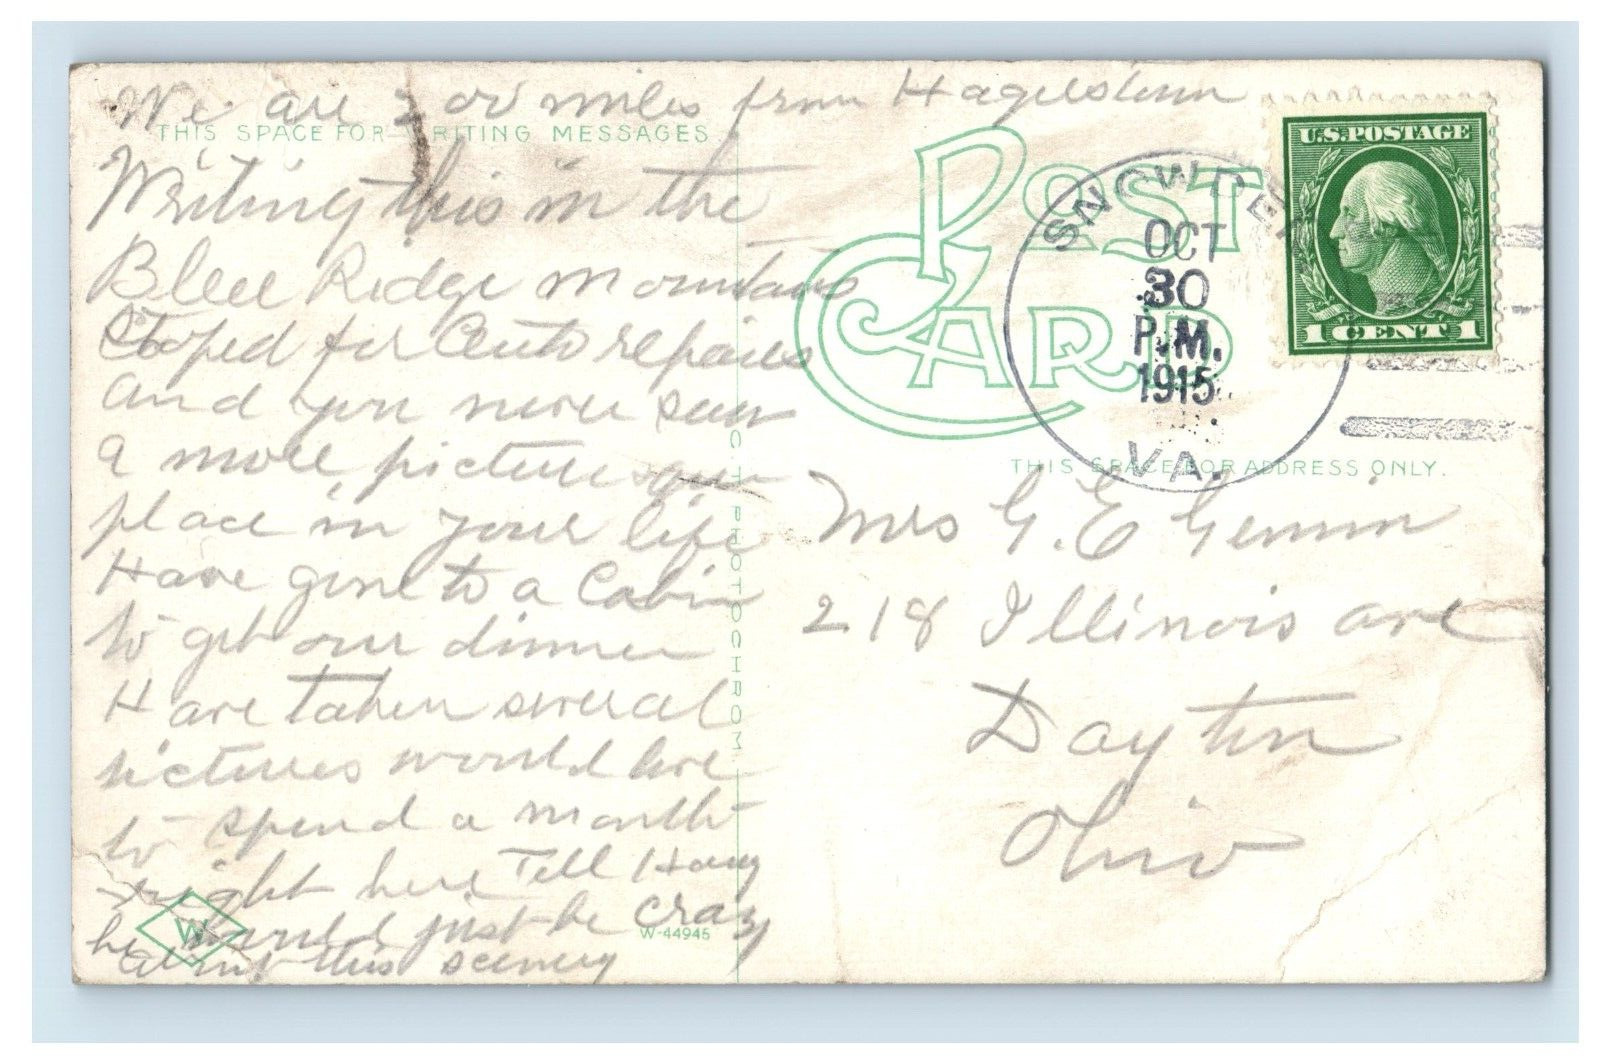 We are 200 miles from Hagerstown
THIS SPACE FOR WRITING MESSAGES
Writing this in the
Blue Ridge mountains
Stoped for Auto repairs
and you never saw
a more picturesque
place in your life
Have gone to a Cabin
to get our dinner
Have taken several
pictures would love
to spend a month
right here Tell Harry
he would just be crazy
about this scenery
W
W-44945
C. T. PHOTOCHROM
POST CARD
SNOWDEN
OCT
30
P.M.
1915
VA.
U.S. POSTAGE
1 CENT 1
THIS SPACE FOR ADDRESS ONLY.
Mrs G. E
218 Illinois ave
Dayton
Ohio